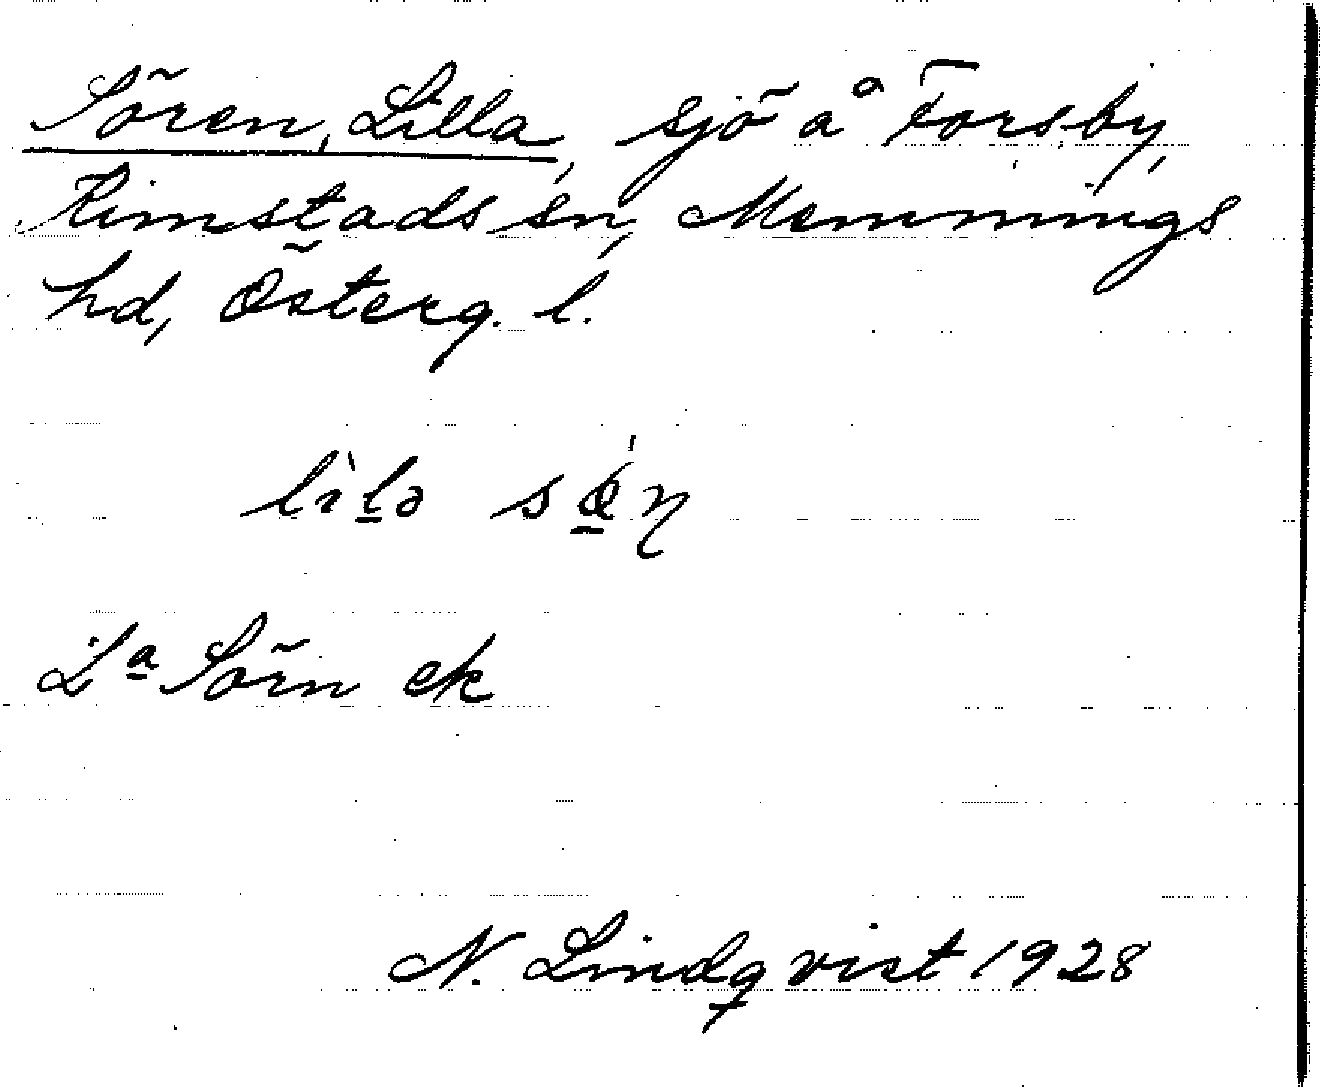 Sören, Lilla, sjö å Forsby,
Kimstads sn, Memmings
hd, Österg. l.
lìlə sǿn
La Sörn ek
N. Lindqvist 1928